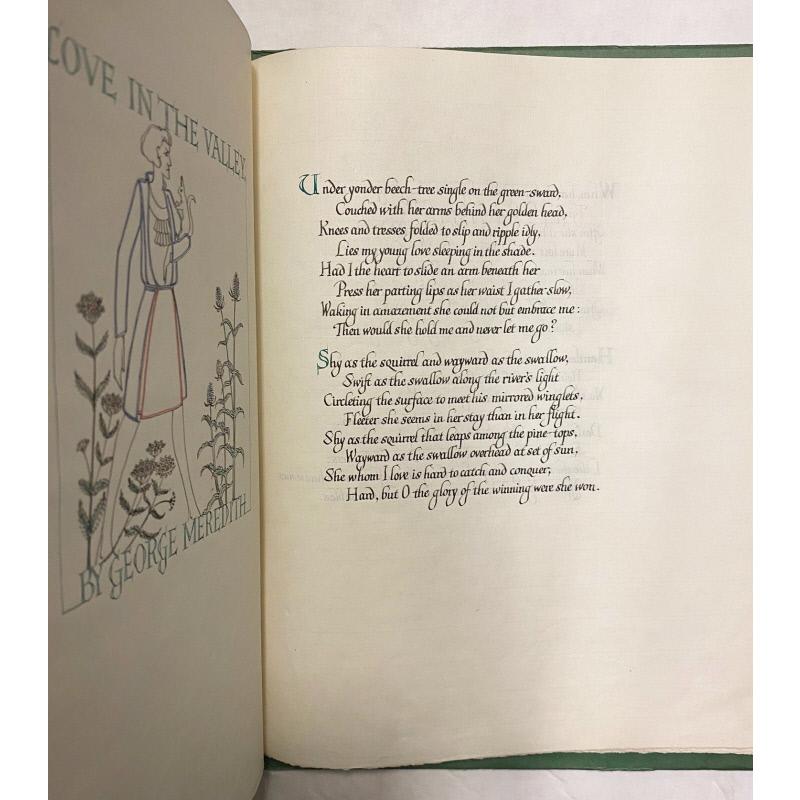 LOVE IN THE VALLEY.
BY GEORGE MEREDITH.
Under yonder beech-tree single on the green-sward,
Couched with her arms behind her golden head,
Knees and tresses folded to slip and ripple idly,
Lies my young love sleeping in the shade.
Had I the heart to slide an arm beneath her
Press her parting lips as her waist I gather slow,
Waking in amazement she could not but embrace me:
Then would she hold me and never let me go?
Shy as the squirrel and wayward as the swallow,
Swift as the swallow along the river's light
Circleting the surface to meet his mirrored winglets,
Fleeter she seems in her stay than in her flight.
Shy as the squirrel that leaps among the pine-tops,
Wayward as the swallow overhead at set of sun,
She whom I love is hard to catch and conquer,
Hard, but O the glory of the winning were she won.